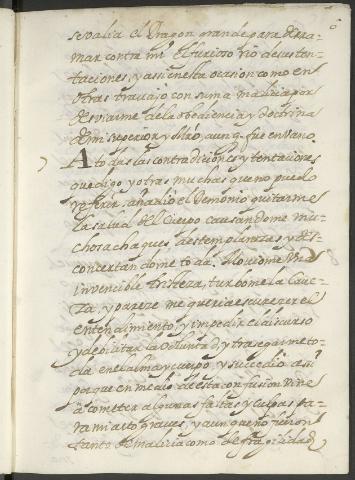 6
se valia el Dragon grande para derra-
mar contra mi el furioso rio de sus ten-
taciones, y assi en esta ocasion como en
otras travajo con suma malicia por
desviarme de la obediencia y doctrina
de mi superior y Mro, aunq. fue en vano.
A todas las contradiciones y tentaciones
que digo y otras muchas que no puedo
referir, añadio el Demonio quitarme
la salud del Cuerpo causandome mu-
chos achaques, destemplanzas, y des-
concertandome toda. Moviome una
invencible tristeza, turbome la Cave-
za, y pareze me queria escurezer el
entendimiento, y impedir el discurso
y debilitar la Voluntad, y trasegarme to-
da en el alma y cuerpo, y succedio assi
porque en medio de esta confusion vine
a cometer algunas faltas y culpas pa-
ra mi arto graves, y aunque no fueron
tanto de malicia como de fragilidad